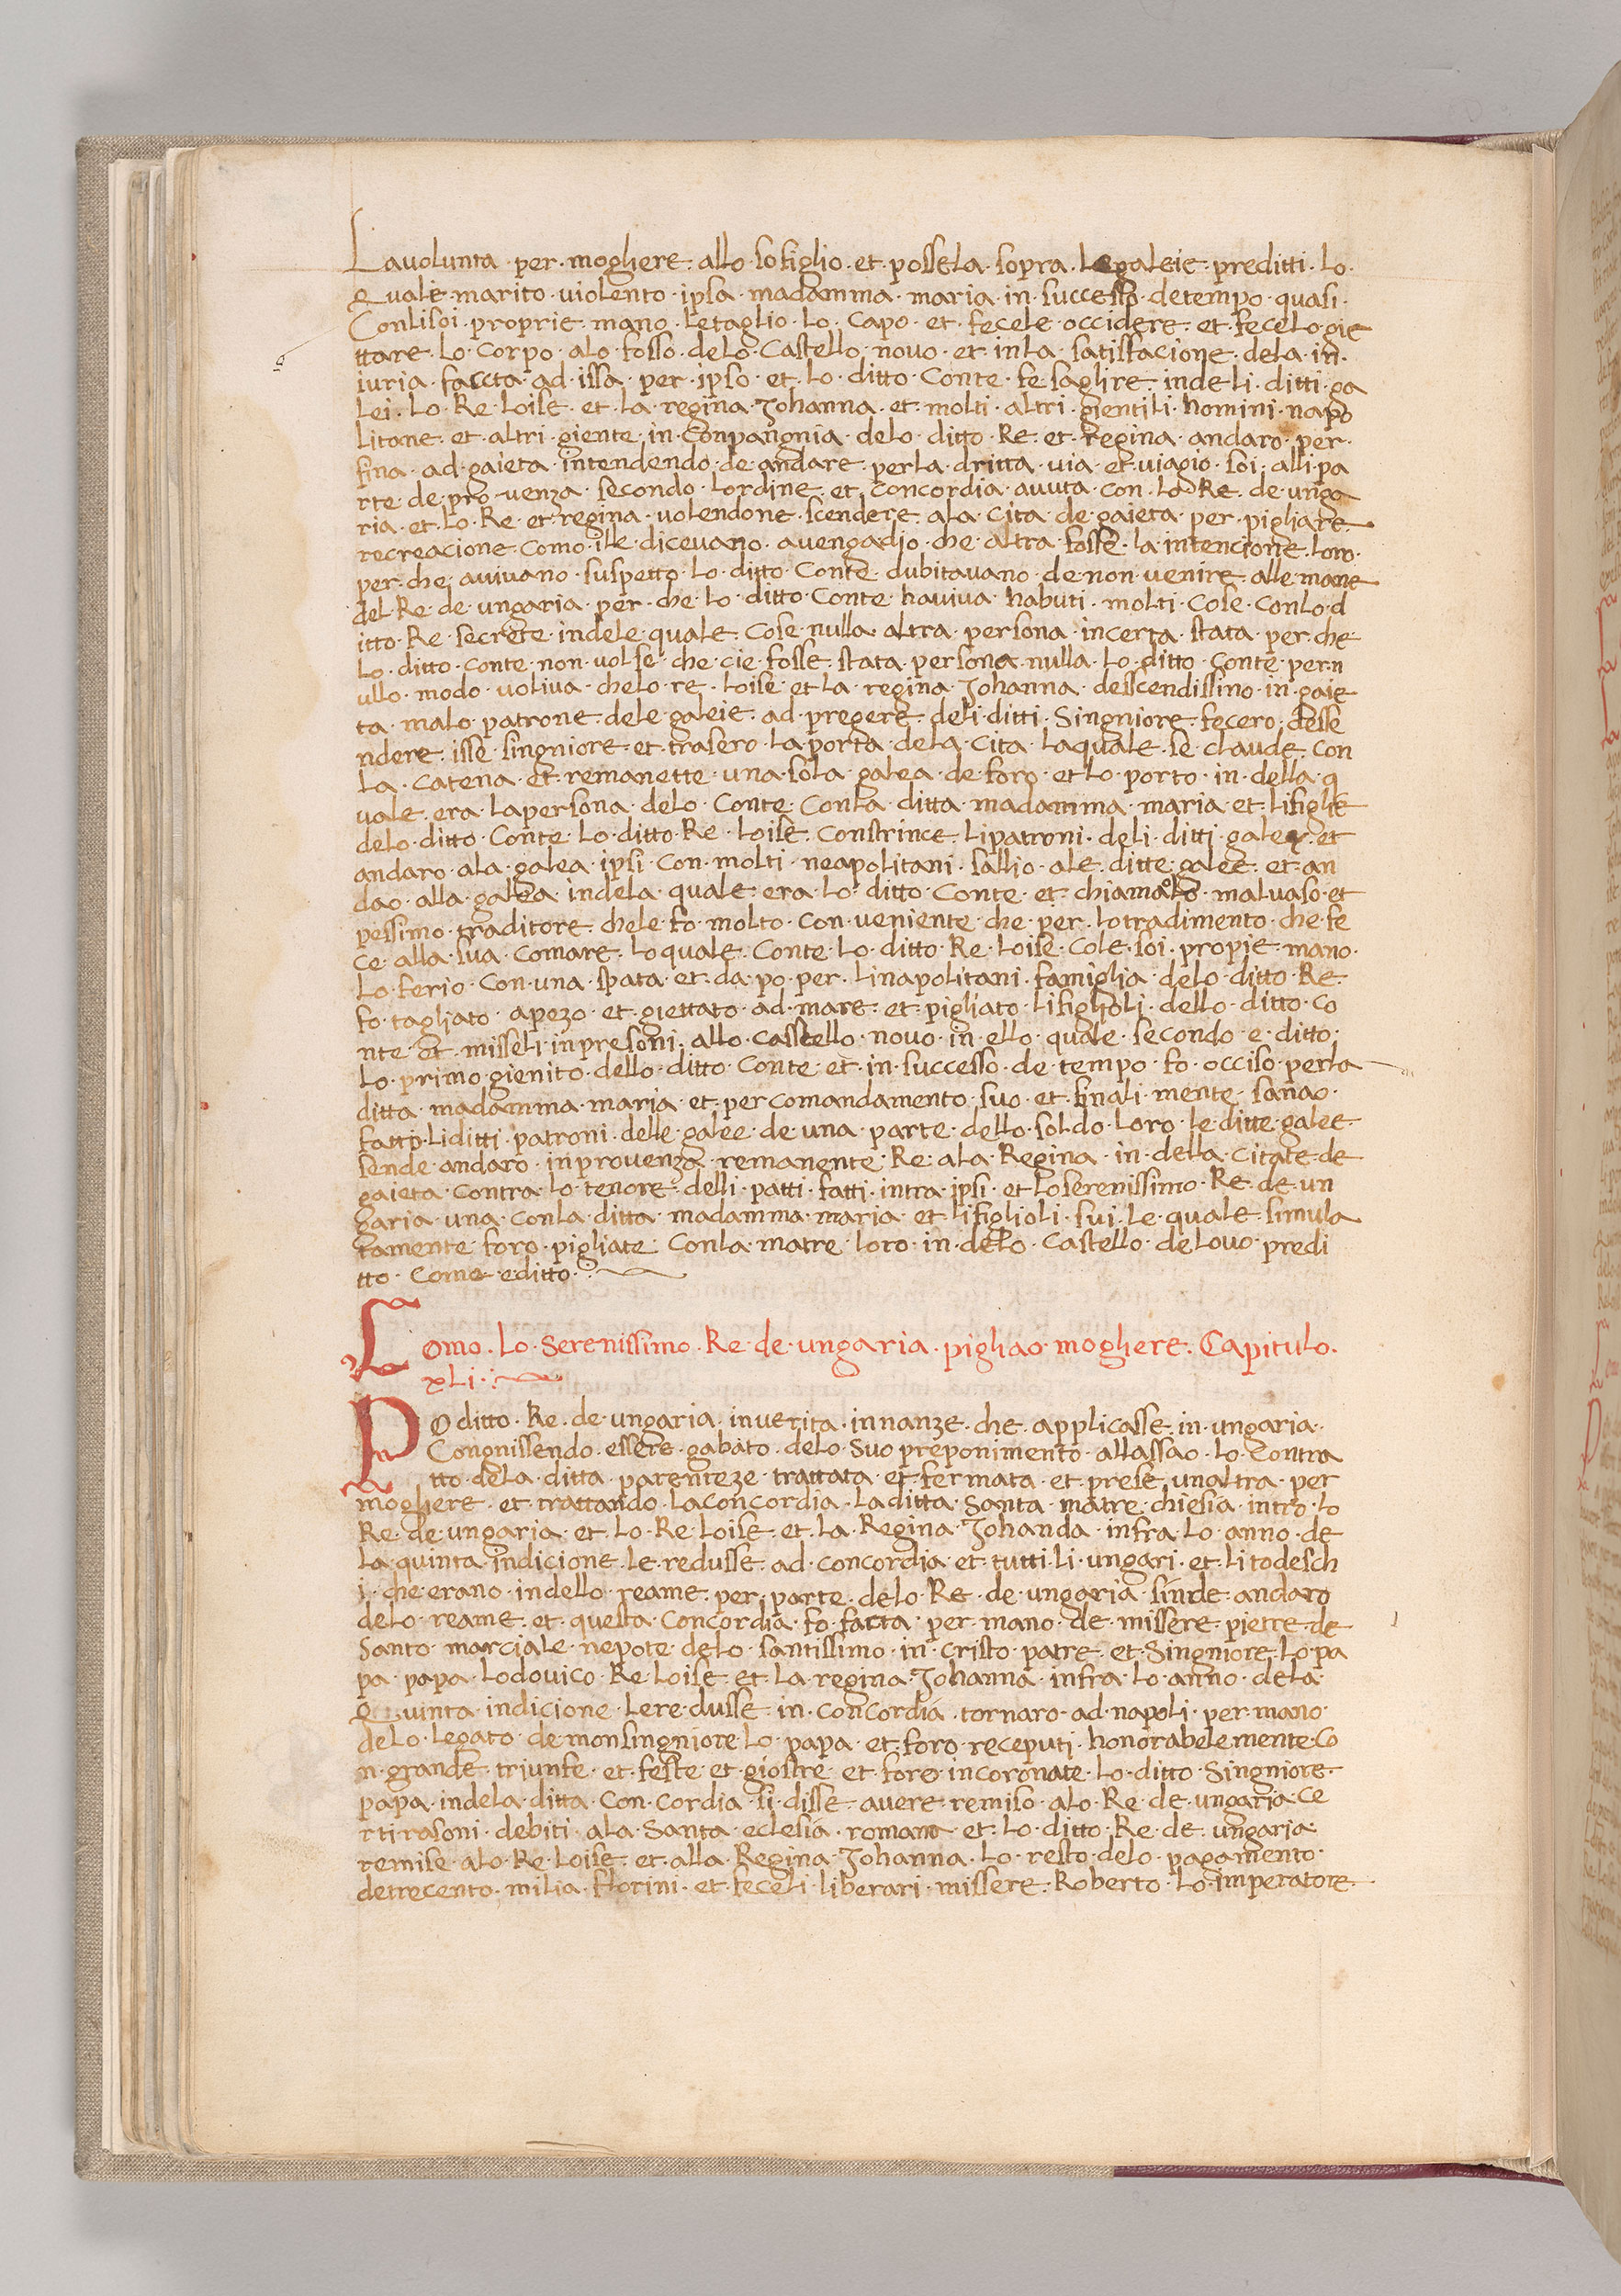 Lavolunta · per · moghere · allo · so figlio · et · possela · sopra · le galeie · preditti · lo ·
Quale · marito · violento · ipsa · madamma · maria · in · successo · de tempo · quasi ·
Con li soi · proprie · mano · le taglio · lo · capo · et · fecele · occidere · et · fecelo · gie
ttare · lo · corpo · alo · fosso · delo · Castello · novo · et · in la · satisfacione · dela · in ·
iuria · faccta · ad · issa · per · ipso · et · lo · ditto · Conte · fe saglire · in deli · ditti · ga
lei · lo · Re · loise · et · la · regina · Johanna · et · molti · altri · gientili · homini · napo
litane · et · altri · giente · in · conpangnia · delo · ditto · Re · et · regina · andaro · per ·
fina · ad · gaieta · intendendo · de · andare · per la · dritta · via · et · viagio · soi · alli · pa
rte · de · pro venza · secondo · lordine · et · concordia · avuta · con · lo Re · de · unga
ria · et · lo · Re · et · regina · volendone · scendere · ala · cita · de · gaieta · per · pigliare
recreacione · como · ille · dicevano · avengadio · che · altra · fosse · la · intencione · loro ·
per · che · avivano · suspetto · lo · ditto · Conte · dubitavano · de · non · venire · alle mane
del · Re · de · ungaria · per · che · lo · ditto · Conte · haviva · habuti · molti · cose · con lo · d
itto · Re · secrete · in dele · quale · cose · nulla · altra · persona · incerta · stata · per che
lo · ditto · conte · non · volse · che · cie · fosse · stata · persona · nulla · lo · ditto · conte · per · n
ullo · modo · voliva · che lo · re · loise · et la · regina · Johanna · desscendissino · in · gaie
ta · malo · patrone · dele · galeie · ad · pregere · deli · ditti · Singniore · fecero · desse
ndere · isse · singniore · et · trasero · la porta · dela · Cita · laquale · se · claude · con
la · catena · et · remanette · una · sola · galea · de foro · et lo · porto · in · della · q
uale · era · la persona · delo · Conte · Con la · ditta · madamma · maria · et · li figlie
delo · ditto · Conte · lo · ditto · Re · loise · constrince · li patroni · deli · ditti · galee · et
andaro · ala · galea · ipsi · con · molti · neapolitani · sallio · ale · ditte · galee · et · an
dao · alla · galea · in dela · quale · era · lo · ditto · Conte · et · chiamaolo · malvaso · et
pessimo · traditore · che le · fo · molto · con · veniente · che · per · lo tradimento · che · fe
ce · alla · sua · comare · lo quale · Conte · lo · ditto · Re · loise · cole · soi · propie · mano ·
lo · ferio · con · una · spata · et · da · po · per · li napolitani · famiglia · delo · ditto · Re ·
fo · tagliato · apezo · et · giettato · ad · mare · et · pigliato · li figlioli · dello · ditto · co
nte · et · misseli · in presoni · allo · casstello · novo · in · ello · quale · secondo · e · ditto ·
lo · primo · gienito · dello · ditto · conte · et · in · successo · de · tempo · fo · occiso · per la
ditta · madamma · maria · et · per comandamento · suo · et · finali · mente · sanao ·
fatto · li ditti · patroni · delle · galee · de · una · parte · dello · soldo · loro · le ditte · galee ·
sende · andaro · in provenza · remanente · Re · ala · Regina · in · della · citate · de
gaieta · contra · lo · tenore · delli · patti · fatti · intra · ipsi · et · lo serenissimo · Re · de · un
garia · una · con la · ditta · madamma · maria · et · li figlioli · sui · le · quale · simula
tamente · foro · pigliate · con la · matre · loro · in · delo · castello · de lovo · predi
tto · come · editto ·
Como · lo · Serenissimo · Re · de · ungaria · pigliao · moghere · Capitulo ·
xli ·
Po ditto · Re · de · ungaria · in verita · innanze · che · applicasse · in · ungaria ·
Congnissendo · essere · gabato · delo · suo · preponimento · allassao · lo · contra
tto · dela · ditta · parenteze · trattata · et · fermata · et · prese · un altra · per
moghere · et · trattando · la concordia · la ditta · santa · matre · chiesia · intro · lo
Re · de · ungaria · et · lo · Re · loise · et · la · Regina · Johanda · infra · lo · anno · de
la · quinta · indicione · le · redusse · ad · concordia · et · tutti · li · ungari · et · li todesch
i · che · erano · in dello · reame · per · parte · delo · Re · de · ungaria · sinde · andaro
delo · reame · et · questa · concordia · fo · facta · per · mano · de · missere · pietre · de
Santo · marciale · nepote · delo · santissimo · in · cristo · patre · et · Singniore · lo · pa
pa · papa · lodovico · Re · loise · et · la · regina · Johanna · infra · lo · anno · dela ·
Quinta · indicione · le re dusse · in · concordia · tornaro · ad · napoli · per · mano ·
delo · legato · de monsingniore · lo · papa · et · foro · receputi · honorabelemente · co
n · grande · triunfe · et · feste · et · giostre · et · foro · incoronate · lo · ditto · Singniore ·
papa · in dela · ditta · con · cordia · si · disse · avere · remiso · alo · Re · de · ungaria · ce
rti rasoni · debiti · ala · Santa · eclesia · romana · et · lo · ditto · Re · de · ungaria ·
remise · alo · Re · loise · et · alla · Regina · Johanna · lo · resto · delo · pagamento ·
de trecento · milia · florini · et · feceli · liberari · missere · Roberto · lo · imperatore ·